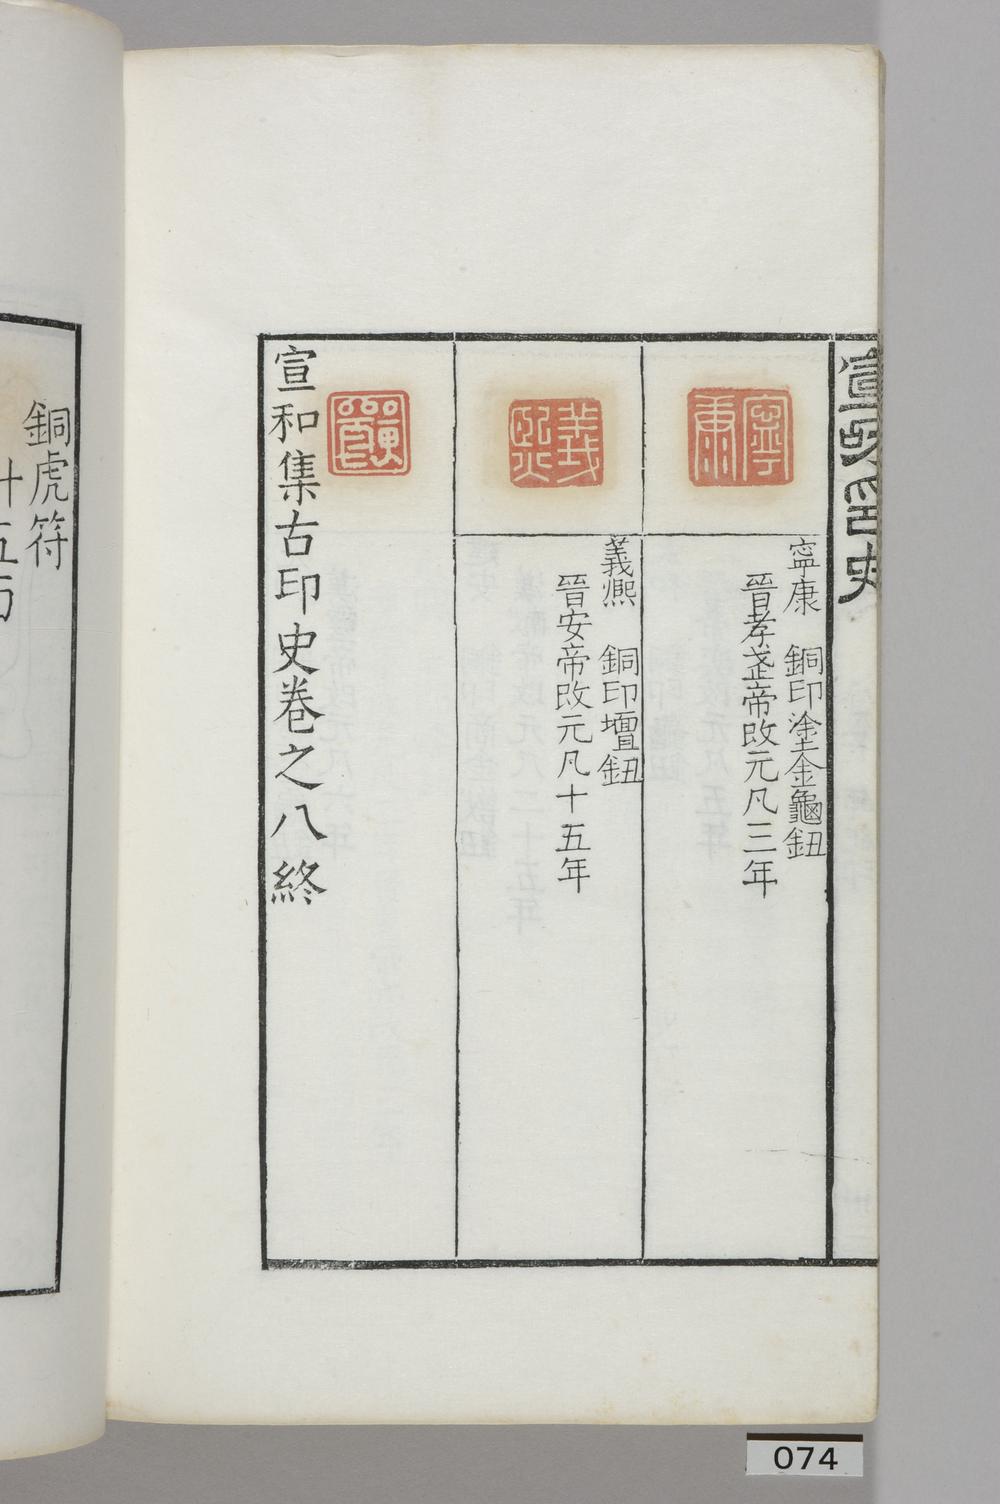 宣和印史
寧康
寧康　銅印塗金龜鈕
晉孝武帝改元凡三年
義熙
義熙　銅印壇鈕
晉安帝改元凡十五年
宣和集古印史卷之八終
銅虎符
074